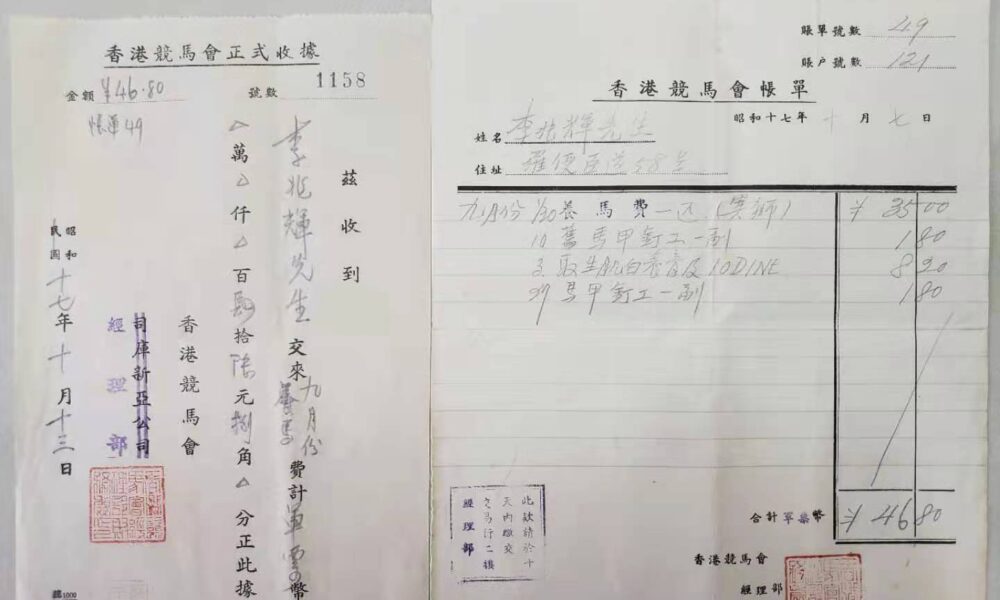 香港競馬會正式收據
金額 ¥46.80
號數 1158
帳單49
茲收到
李兆輝先生交來九月份養馬費計軍票幣
△萬△仟△百肆拾陸元捌角△分正此據
香港競馬會
司庫新亞公司
經理部
昭和
民國
十七年十月十三日
賬單號數 49
賬戶號數 121
香港競馬會帳單
昭和十七年十月七日
姓名 李兆輝先生
住址 羅便臣道58号
九月份 1/30 養馬費一匹 ¥ 35 00
10 舊馬甲釘工一副 1 80
3 取生肌白養膏及 IODINE 8 20
29 馬甲釘工一副 1 80
合計軍票幣 ¥ 46 80
此款請於十
天內繳交
交易行二樓
經理部
香港競馬會
經理部